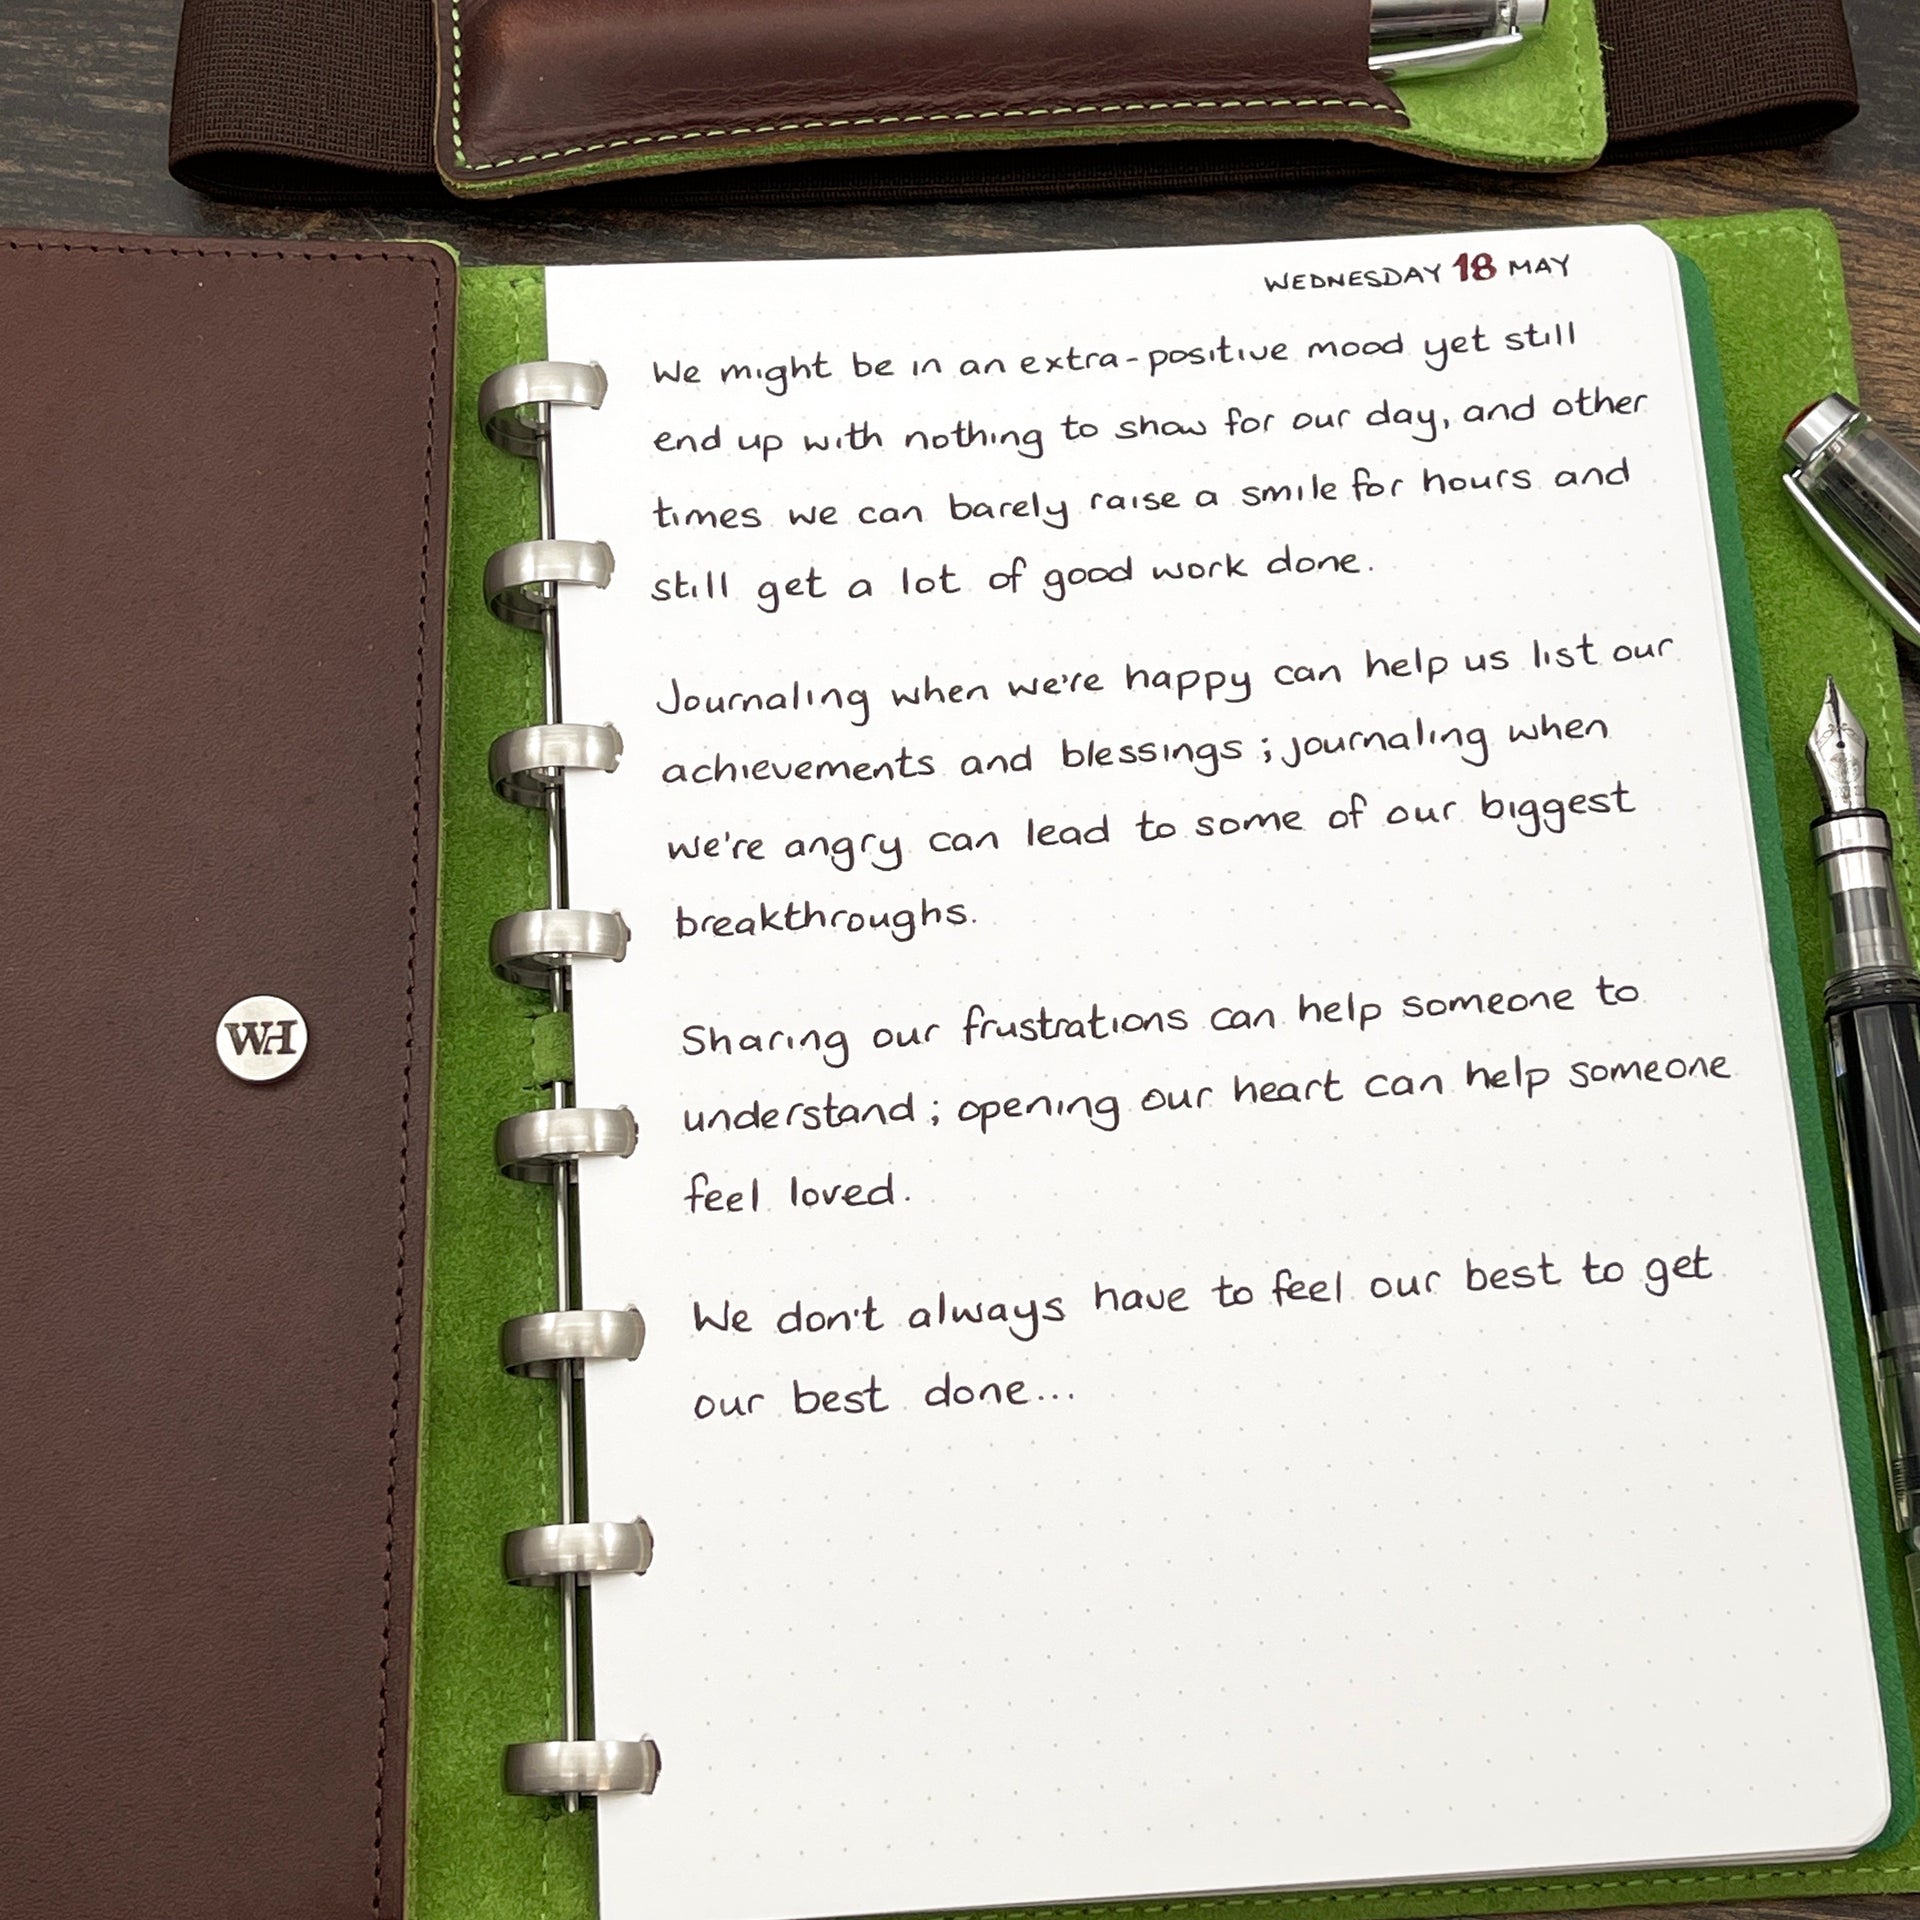 WEDNESDAY 18 MAY
We might be in an extra-positive mood yet still
end up with nothing to show for our day, and other
times we can barely raise a smile for hours and
still get a lot of good work done.
Journaling when we're happy can help us list our
achievements and blessings; journaling when
we're angry can lead to some of our biggest
breakthroughs.
Sharing our frustrations can help someone to
understand; opening our heart can help someone
feel loved.
We don't always have to feel our best to get
our best done...
WH